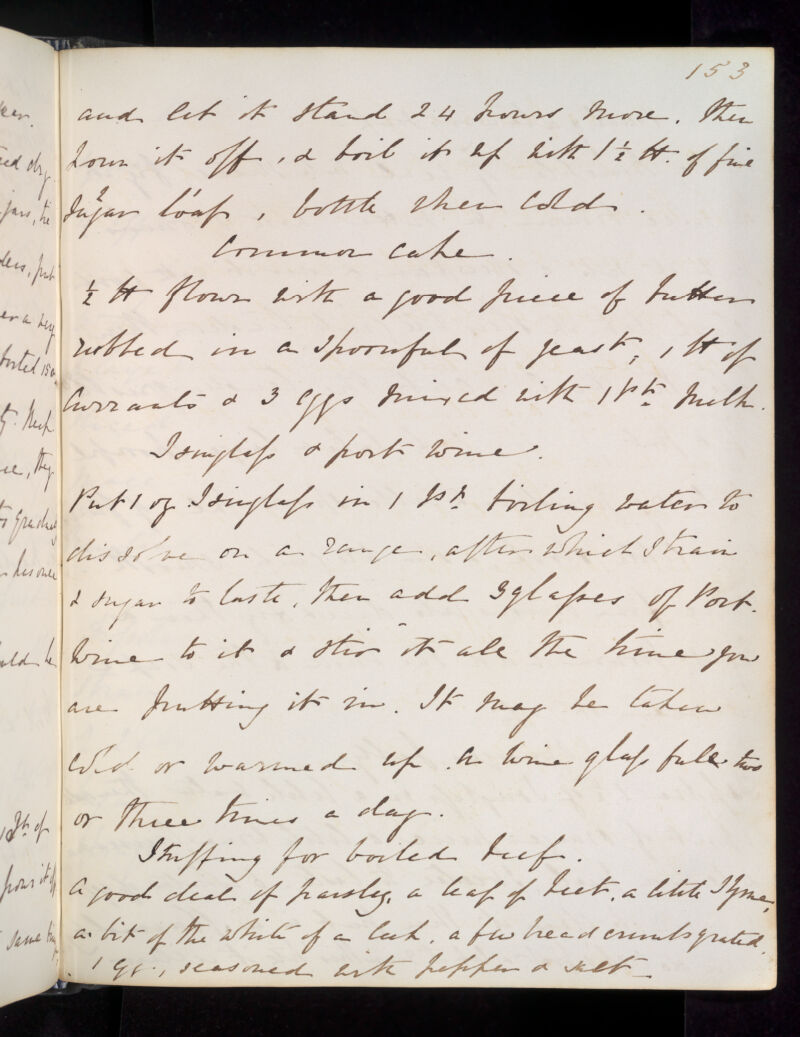 153
and let it stand 24 hours more. then
pour it off, & boil it up with 1½ lb. of fine
2 1
Sugar loaf, bottle when cold.
Common cake.
½ lb flour with a good piece of butter
rubbed in a spoonful of yeast, 1 lb of
Currants & 3 eggs mixed with 1 pt. milk.
Isinglass & port wine.
Put 1 oz Isinglass in 1 pt. boiling water to
dissolve on a range, after which strain
& sugar to taste, then add 3 glasses of Port
Wine to it & stir it all the time you
are putting it in. It may be taken
cold or warmed up. a wine glass full two
or three times a day.
Stuffing for boiled beef.
A good deal of parsley, a leaf of beet, a little Thyme,
a bit of the white of a leek, a few bread crumbs grated,
1 egg, seasoned with pepper & salt